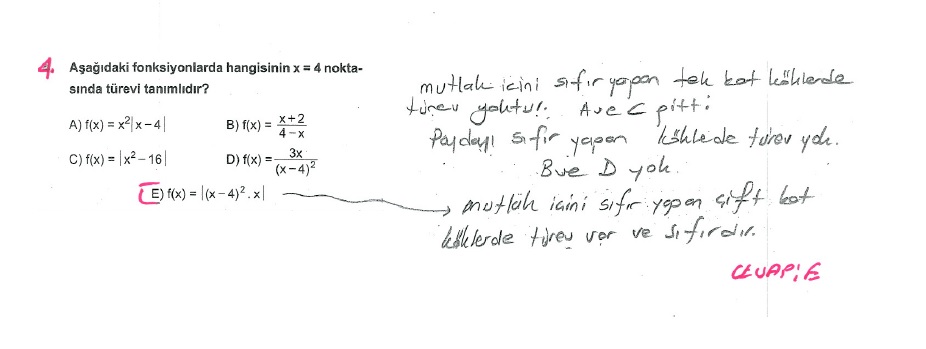 4. Aşağıdaki fonksiyonlarda hangisinin x = 4 nokta-
sında türevi tanımlıdır?
A) f(x) = x²|x – 4|
B) f(x) = (x+2)/(4–x)
C) f(x) = |x² – 16|
D) f(x) = 3x/(x–4)²
E) f(x) = |(x – 4)² . x|
mutlak içini sıfır yapan tek kat köklerde
türev yoktur. A ve C gitti.
Paydayı sıfır yapan köklede türev yok.
B ve D yok.
mutlak içini sıfır yapan çift kat
köklerde türev var ve sıfırdır.
CEVAP: E